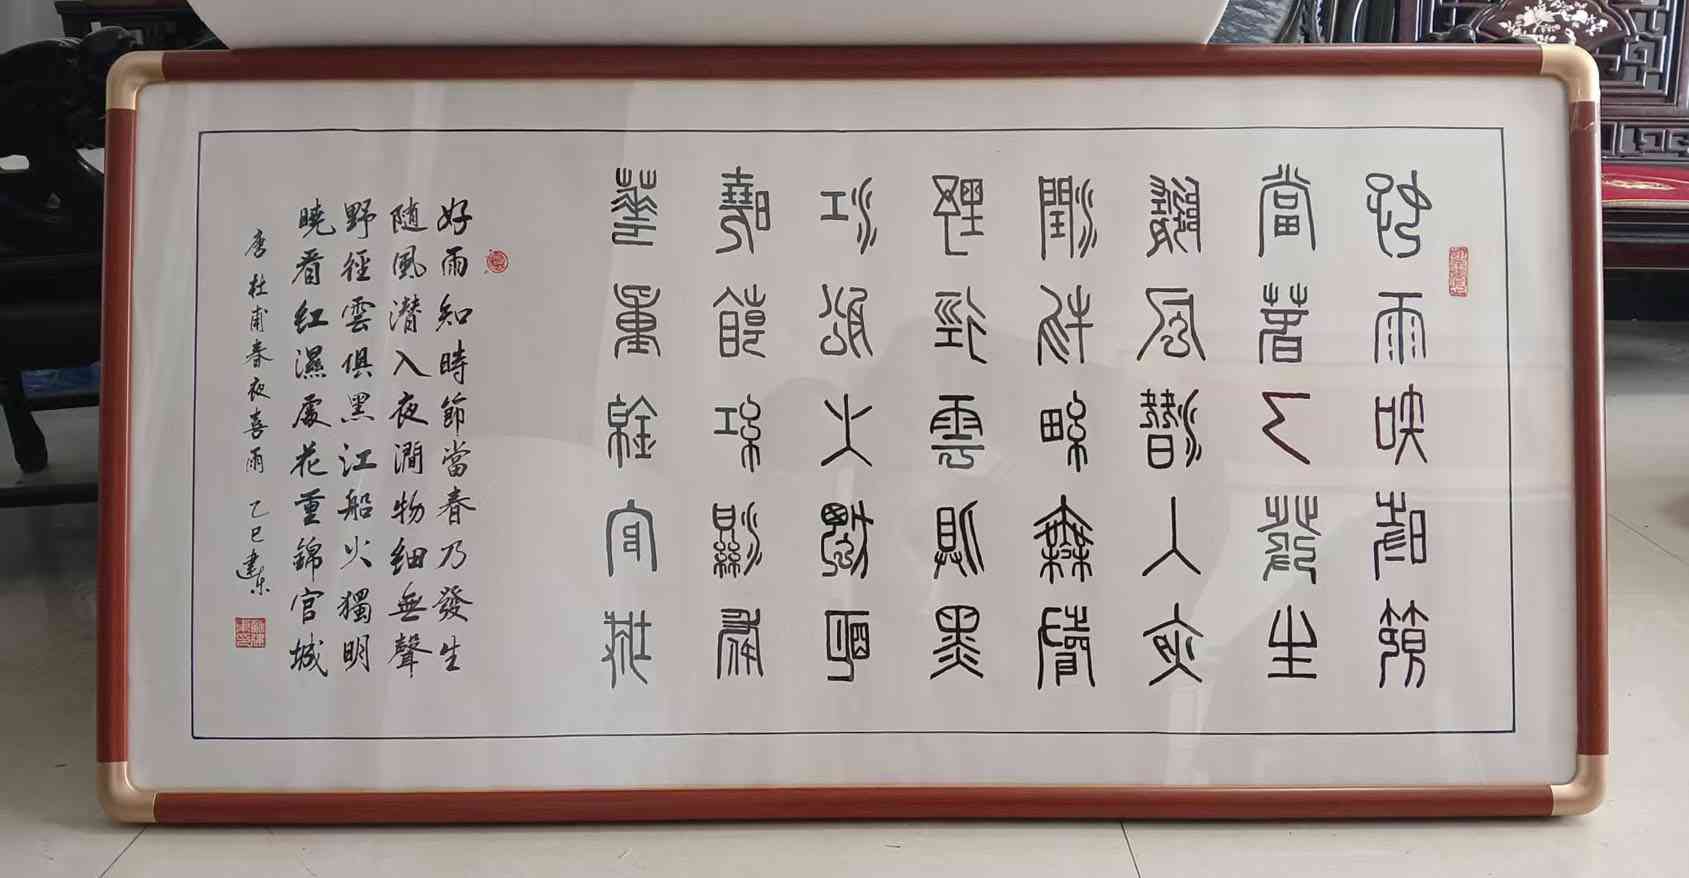 好雨知時節
當春乃發生
随風潜入夜
潤物細無聲
野徑雲俱黑
江船火獨明
曉看紅濕處
花重錦官城
好雨知時節當春乃發生
随風潜入夜澗物细無聲
野徑雲俱黑江船火獨明
曉看红濕處花重錦官城
唐杜甫春夜喜雨 乙巳建东